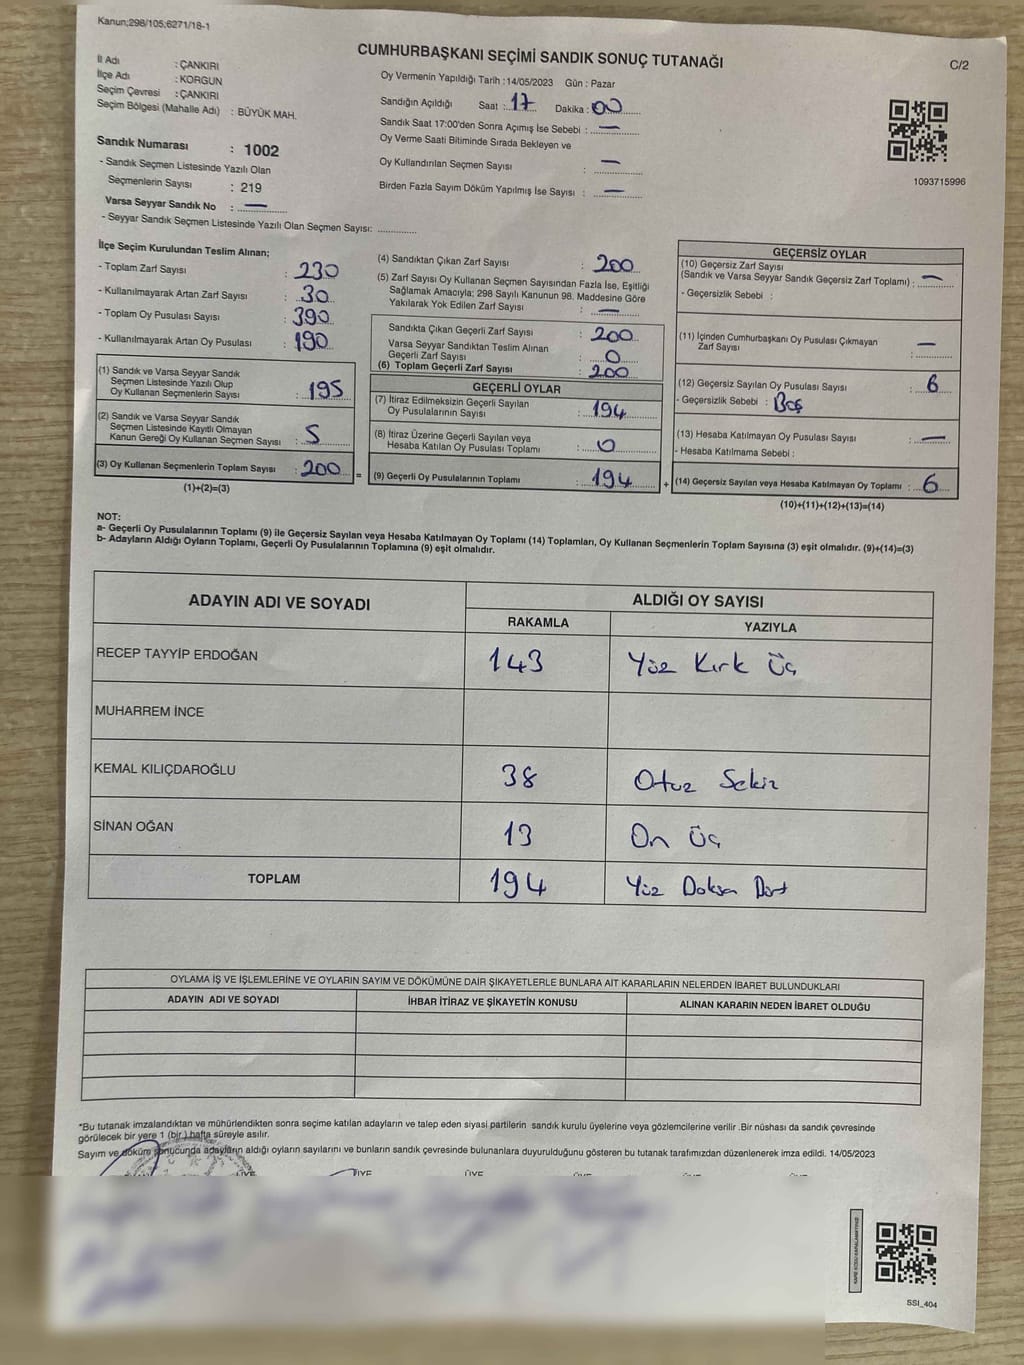 Kanun;298/105;6271/18-1
CUMHURBAŞKANI SEÇİMİ SANDIK SONUÇ TUTANAĞI
C/2
İl Adı : ÇANKIRI
İlçe Adı : KORGUN
Seçim Çevresi : ÇANKIRI
Seçim Bölgesi (Mahalle Adı) : BÜYÜK MAH.
Sandık Numarası : 1002
- Sandık Seçmen Listesinde Yazılı Olan
Seçmenlerin Sayısı : 219
Varsa Seyyar Sandık No : —
- Seyyar Sandık Seçmen Listesinde Yazılı Olan Seçmen Sayısı: ............
Oy Vermenin Yapıldığı Tarih :14/05/2023 Gün : Pazar
Sandığın Açıldığı Saat :..17.... Dakika : 00
Sandık Saat 17:00'den Sonra Açımış İse Sebebi : —
Oy Verme Saati Bitiminde Sırada Bekleyen ve
Oy Kullandırılan Seçmen Sayısı : —
Birden Fazla Sayım Döküm Yapılmış İse Sayısı : —
1093715996
İlçe Seçim Kurulundan Teslim Alınan;
- Toplam Zarf Sayısı : 230
- Kullanılmayarak Artan Zarf Sayısı : 30
- Toplam Oy Pusulası Sayısı : 390
- Kullanılmayarak Artan Oy Pusulası : 190
(1) Sandık ve Varsa Seyyar Sandık
Seçmen Listesinde Yazılı Olup
Oy Kullanan Seçmenlerin Sayısı : 195
(2) Sandık ve Varsa Seyyar Sandık
Seçmen Listesinde Kayıtlı Olmayan
Kanun Gereği Oy Kullanan Seçmen Sayısı : 5
(3) Oy Kullanan Seçmenlerin Toplam Sayısı : 200
(1)+(2)=(3)
=
(4) Sandıktan Çıkan Zarf Sayısı : 200
(5) Zarf Sayısı Oy Kullanan Seçmen Sayısından Fazla İse, Eşitliği
Sağlamak Amacıyla; 298 Sayılı Kanunun 98. Maddesine Göre
Yakılarak Yok Edilen Zarf Sayısı : —
Sandıkta Çıkan Geçerli Zarf Sayısı : 200
Varsa Seyyar Sandıktan Teslim Alınan
Geçerli Zarf Sayısı : 0
(6) Toplam Geçerli Zarf Sayısı : 200
GEÇERLİ OYLAR
(7) İtiraz Edilmeksizin Geçerli Sayılan
Oy Pusulalarının Sayısı : 194
(8) İtiraz Üzerine Geçerli Sayılan veya
Hesaba Katılan Oy Pusulası Toplamı : 0
(9) Geçerli Oy Pusulalarının Toplamı : 194
+
GEÇERSİZ OYLAR
(10) Geçersiz Zarf Sayısı
(Sandık ve Varsa Seyyar Sandık Geçersiz Zarf Toplamı) : —
- Geçersizlik Sebebi :
(11) İçinden Cumhurbaşkanı Oy Pusulası Çıkmayan
Zarf Sayısı : —
(12) Geçersiz Sayılan Oy Pusulası Sayısı : 6
- Geçersizlik Sebebi : Boş
(13) Hesaba Katılmayan Oy Pusulası Sayısı : —
- Hesaba Katılmama Sebebi :
(14) Geçersiz Sayılan veya Hesaba Katılmayan Oy Toplamı : 6
(10)+(11)+(12)+(13)=(14)
NOT:
a- Geçerli Oy Pusulalarının Toplamı (9) ile Geçersiz Sayılan veya Hesaba Katılmayan Oy Toplamı (14) Toplamları, Oy Kullanan Seçmenlerin Toplam Sayısına (3) eşit olmalıdır. (9)+(14)=(3)
b- Adayların Aldığı Oyların Toplamı, Geçerli Oy Pusulalarının Toplamına (9) eşit olmalıdır.
ADAYIN ADI VE SOYADI
ALDIĞI OY SAYISI
RAKAMLA YAZIYLA
RECEP TAYYİP ERDOĞAN 143 Yüz Kırk Üç
MUHARREM İNCE
KEMAL KILIÇDAROĞLU 38 Otuz Sekiz
SİNAN OĞAN 13 On Üç
TOPLAM 194 Yüz Doksan Dört
OYLAMA İŞ VE İŞLEMLERİNE VE OYLARIN SAYIM VE DÖKÜMÜNE DAİR ŞİKAYETLERLE BUNLARA AİT KARARLARIN NELERDEN İBARET BULUNDUKLARI
ADAYIN ADI VE SOYADI İHBAR İTİRAZ VE ŞİKAYETİN KONUSU ALINAN KARARIN NEDEN İBARET OLDUĞU
*Bu tutanak imzalandıktan ve mühürlendikten sonra seçime katılan adayların ve talep eden siyasi partilerin sandık kurulu üyelerine veya gözlemcilerine verilir .Bir nüshası da sandık çevresinde
görülecek bir yere 1 (bir ) hafta süreyle asılır.
Sayım ve döküm sonucunda adayların aldığı oyların sayılarını ve bunların sandık çevresinde bulunanlara duyurulduğunu gösteren bu tutanak tarafımızdan düzenlenerek imza edildi. 14/05/2023
ÜYE ÜYE
SSI_404